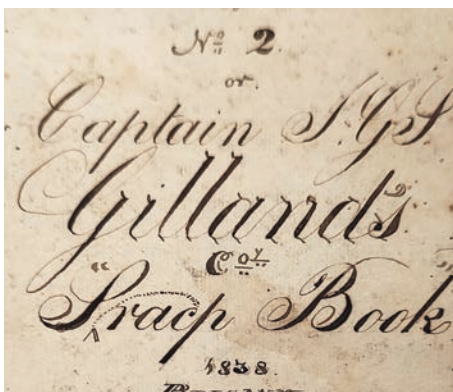 Nº 2.
or.
Captain
Gilland's
Cºʸ
“ Sracp Book ”
1838